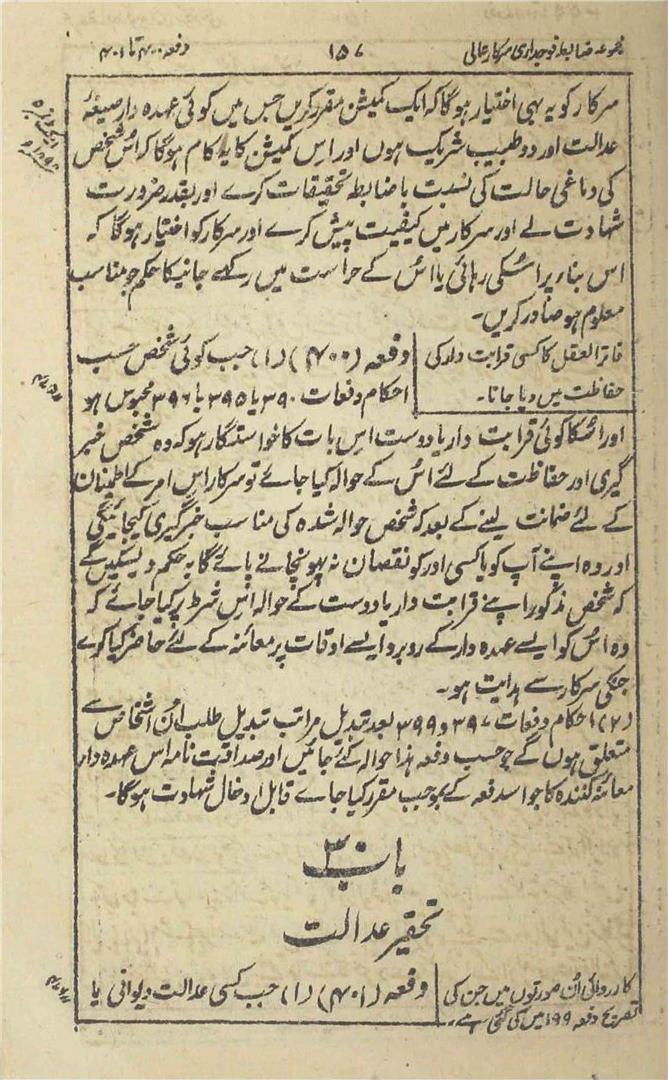 دفعہ ۴۰۰ تا ۴۰۱
۱۵۷
مجموعہ ضابطہ فوجداری سرکار عالی
سرکار کو یہ بھی اختیار ہوگا کہ ایک کمیشن مقرر کریں جس میں کوئی عہدہ دار صیغۂ
عدالت اور دو طبیب شریک ہوں اور اس کمیشن کا یہ کام ہوگا کہ اُس شخص
کی دماغی حالت کی نسبت باضابطہ تحقیقات کرے اور بقدر ضرورت
شہادت لے اور سرکار میں کیفیت پیش کرے اور سرکار کو اختیار ہوگا کہ
اس بناء پر اسکی رہائی یا اُس کے حراست میں رکھے جانیکا حکم جو مناسب
معلوم ہو صادر کریں۔
فاتر العقل کا کسی قرابت دار کی
حفاظت میں دیا جانا۔
دفعہ (۴۰۰) (۱) جب کوئی شخص حسب
احکام دفعات ۳۹۰ یا ۳۹۵ یا ۳۹۶ محبوس ہو
اور اُسکا کوئی قرابت دار یا دوست اس بات کا خواستگار ہو کہ وہ شخص خبر
گیری اور حفاظت کے لئے اُس کے حوالہ کیا جائے تو سرکار اس امر کے اطمینان
کے لئے ضمانت لینے کے بعد کہ شخص حوالہ شدہ کی مناسب خبر گیری کیجائیگی
اور وہ اپنے آپ کو یا کسی اور کو نقصان نہ پہونچانے پائے گا یہ حکم دیسکیں گے
کہ شخص مذکور اپنے قرابت دار یا دوست کے حوالہ اس شرط پر کیا جائے کہ
وہ اُس کو ایسے عہدہ دار کے روبرو ایسے اوقات پر معائنہ کے لئے حاضر کیا کرے
جنکی سرکار سے ہدایت ہو۔
(۲) احکام دفعات ۳۹۷ و ۳۹۹ بعد تبدیل مراتب تبدیل طلب اُن اشخاص سے
متعلق ہوں گے جو حسب دفعہ ہذا حوالہ کئے جائیں اور صداقت نامہ اس عہدہ دار
معائنہ کنندہ کا جو اسدفعہ کے بموجب مقرر کیا جائے قابل ادخال شہادت ہوگا۔
باب ۳۰
تحقیر عدالت
کارروائی اُن صورتوں میں جن کی
تصریح دفعہ ۱۹۹ میں کی گئی ہے۔
دفعہ (۴۰۱) (۱) جب کسی عدالت دیوانی یا